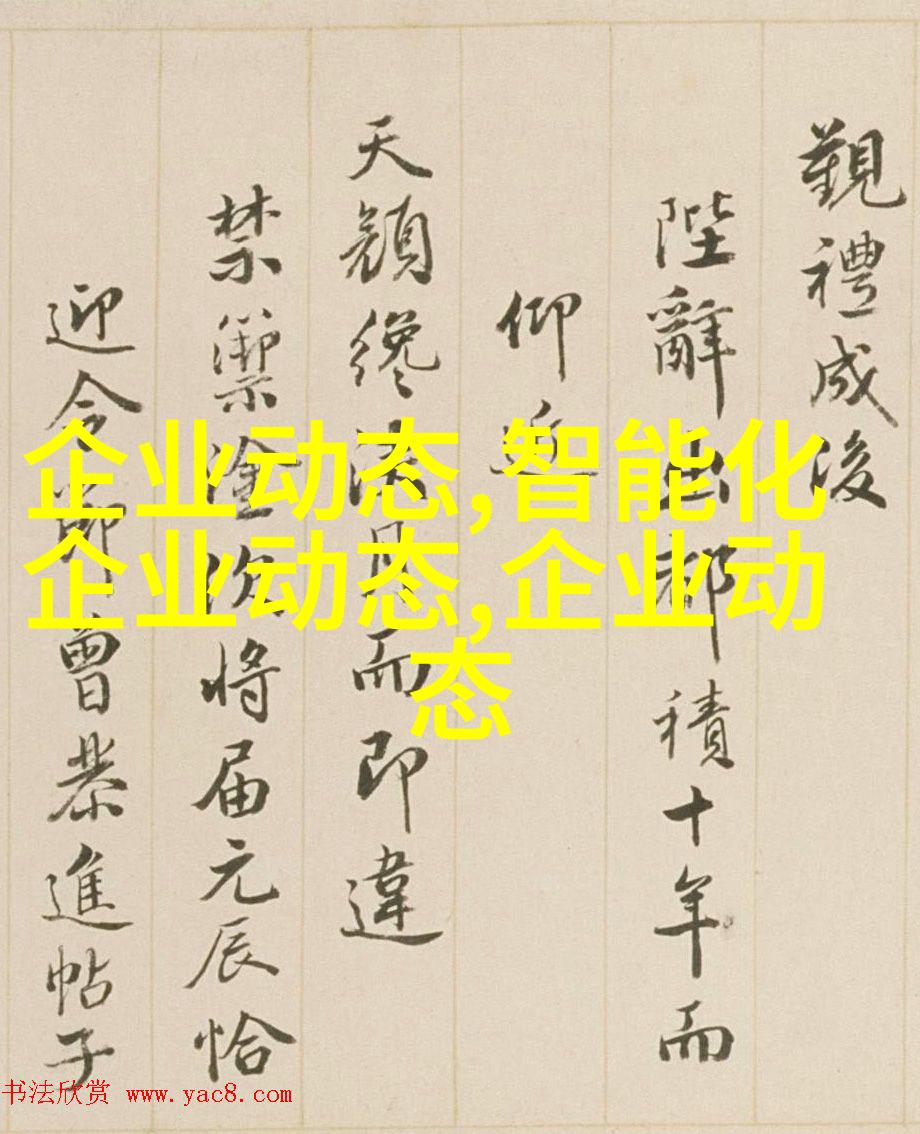 覲禮成後
陛辭出都積十年而
仰近
天顏纔浹月而即違
禁籞塗次將届元辰恰
迎令節曾恭進帖子
企业动态,智能化
企业动态,企业动
态
书法欣赏 www.yac8.com